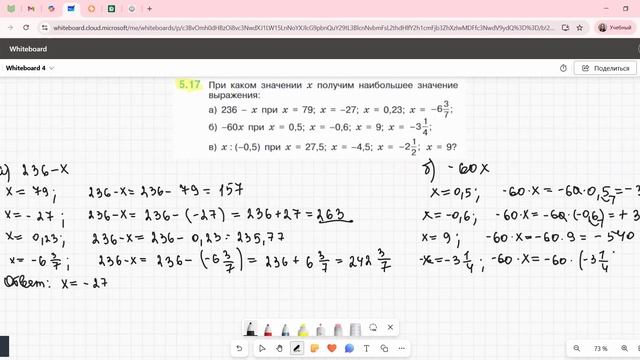 whiteboard.cloud.microsoft/me/whiteboards/p/
Учебный
Whiteboard
Whiteboard 4
Поделиться
5.17 При каком значении x получим наибольшее значение
выражения:
а) 236 – x при x = 79; x = –27; x = 0,23; x = –6 3/7;
б) –60x при x = 0,5; x = –0,6; x = 9; x = –3 1/4;
в) x : (–0,5) при x = 27,5; x = –4,5; x = –2 1/2; x = 9?
а) 236-x
x = 79; 236-x = 236 - 79 = 157
x = -27; 236-x = 236 - (-27) = 236+27 = 263
x = 0,23; 236-x = 236 - 0,23 = 235,77
x = -6 3/7; 236-x = 236 - (-6 3/7) = 236 + 6 3/7 = 242 3/7
Ответ: x = -27
б) -60x
x = 0,5; -60·x = -60·0,5 = -3
x = -0,6; -60·x = -60·(-0,6) = +3
x = 9; -60·x = -60·9 = -540
-x = -3 1/4; -60·x = -60·(-3 1/4
73 %